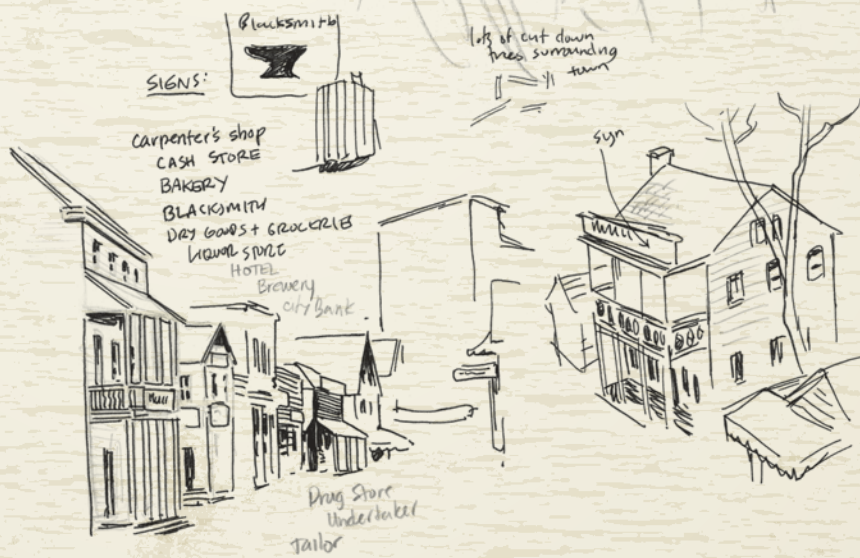 Blacksmith
lots of cut down
trees surrounding
town
SIGNS:
carpenter's shop
CASH STORE
BAKERY
BLACKSMITH
DRY GOODS + GROCKRIES
LIQUOR STORE
HOTEL
Brewery
City Bank
sign
Drug Store
Undertaker
Tailor